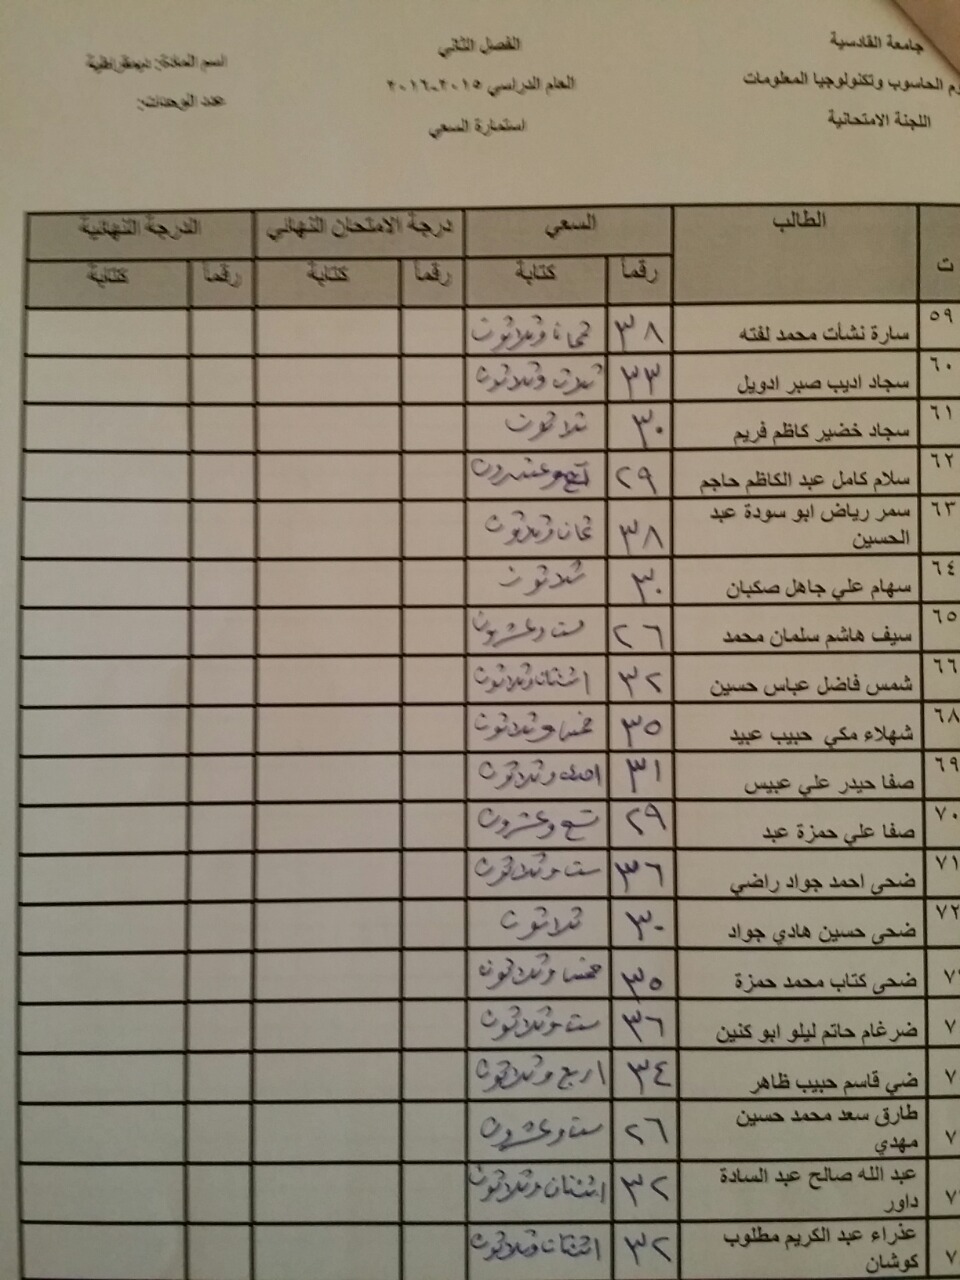 جامعة القادسية
وم الحاسوب وتكنولوجيا المعلومات
اللجنة الامتحانية
الفصل الثاني
العام الدراسي ٢٠١٥-٢٠١٦
استمارة السعي
اسم المادة: ديمقراطية
عدد الوحدات:
ت الطالب السعي درجة الامتحان النهائي الدرجة النهائية
رقماً كتابة رقماً كتابة رقماً كتابة
٥٩ سارة نشأت محمد لفته ٣٨ ثمان وثلاثون
٦٠ سجاد اديب صبر ادويل ٣٣ ثلاث وثلاثون
٦١ سجاد خضير كاظم فريم ٣٠ ثلاثون
٦٢ سلام كامل عبد الكاظم حاجم ٢٩ تسع وعشرون
٦٣ سمر رياض ابو سودة عبد
الحسين ٣٨ ثمان وثلاثون
٦٤ سهام علي جاهل صكبان ٣٠ ثلاثون
٦٥ سيف هاشم سلمان محمد ٢٦ ست وعشرون
٦٦ شمس فاضل عباس حسين ٣٢ اثنتان وثلاثون
٦٨ شهلاء مكي حبيب عبيد ٣٥ خمس وثلاثون
٦٩ صفا حيدر علي عبيس ٣١ احدى وثلاثون
٧٠ صفا علي حمزة عبد ٢٩ تسع وعشرون
٧١ ضحى احمد جواد راضي ٣٦ ست وثلاثون
٧٢ ضحى حسين هادي جواد ٣٠ ثلاثون
٧ ضحى كتاب محمد حمزة ٣٥ خمس وثلاثون
٧ ضرغام حاتم ليلو ابو كنين ٣٦ ست وثلاثون
٧ ضي قاسم حبيب ظاهر ٣٤ اربع وثلاثون
٧ طارق سعد محمد حسين
مهدي ٢٦ ست وعشرون
٧ عبد الله صالح عبد السادة
داور ٣٢ اثنتان وثلاثون
٧ عذراء عبد الكريم مطلوب
كوشان ٣٢ اثنتان وثلاثون